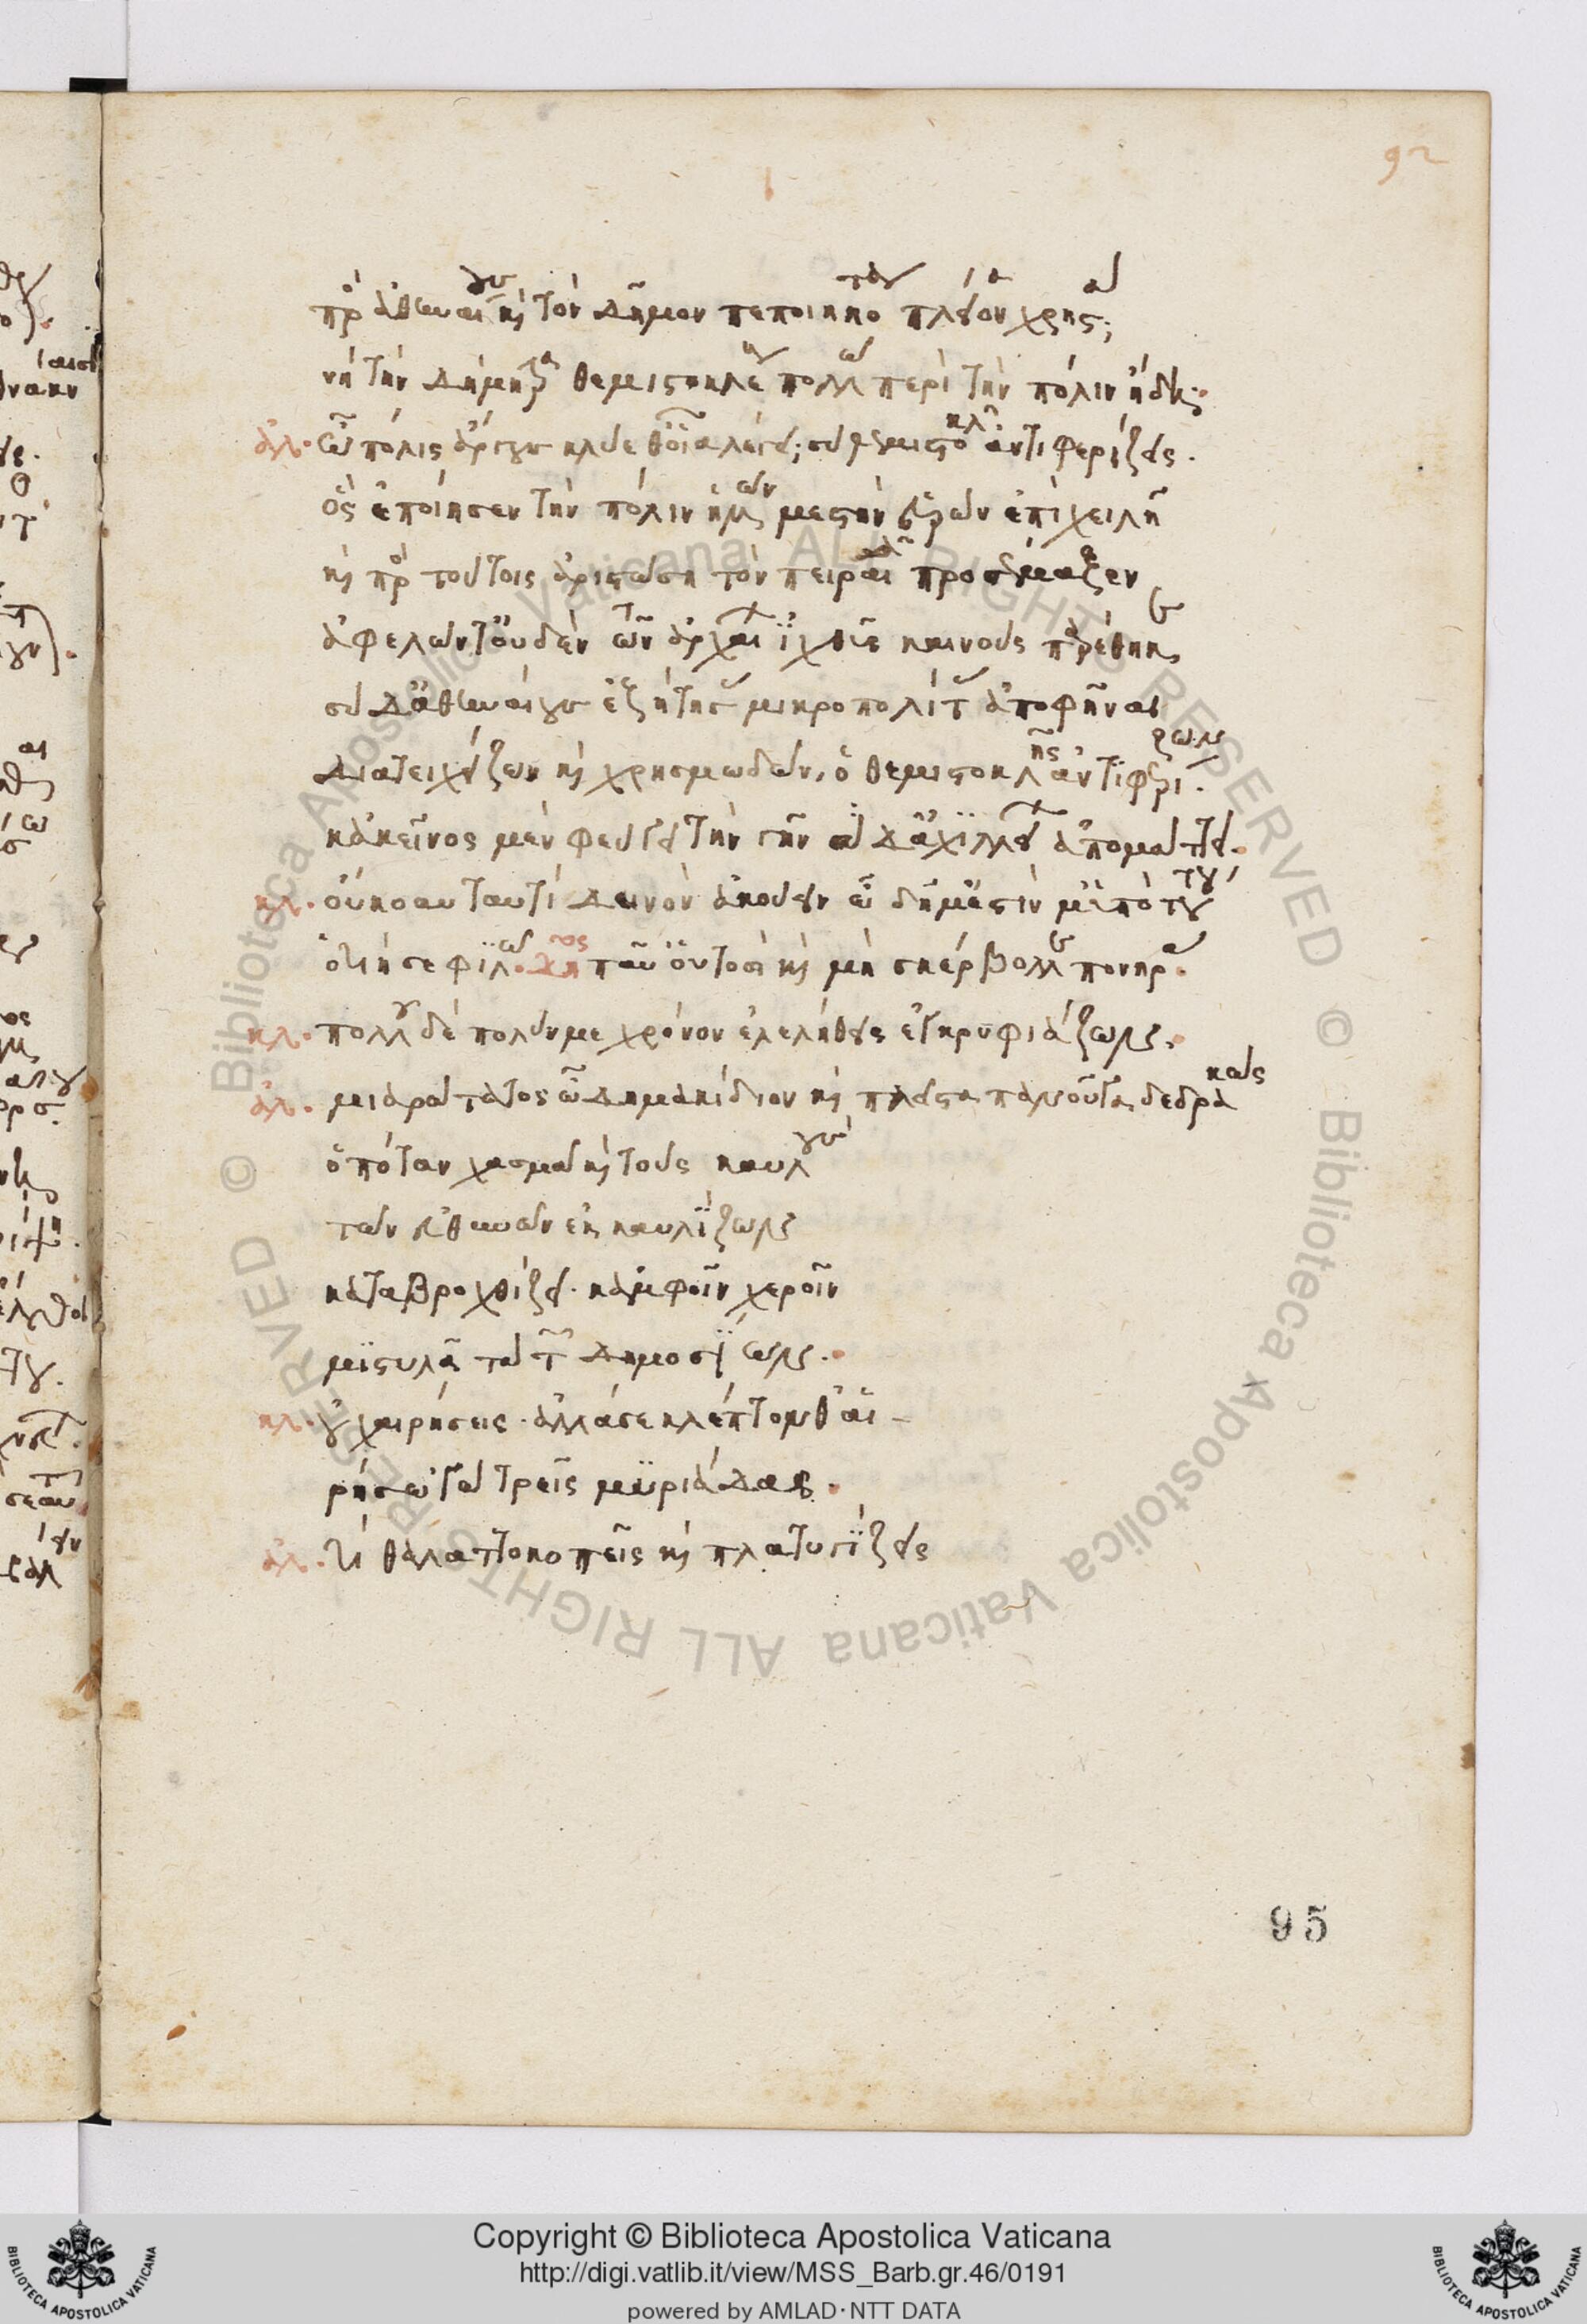 92
πρὸς ἀθηναίους καὶ τὸν δῆμον πεποιηκότα πλείονα χρηστὰ;
νὴ τὴν δήμητρα θεμιστοκλέους πολλῶ περὶ τὴν πόλιν ἤδη·
ἀλ. ὦ πόλις ἄργους κλύεθ' οἷα λέγει; σὺ θεμιστοκλεῖ ἀντιφερίζεις.
ὃς ἐποίησεν τὴν πόλιν ἡμῶν μεστὴν εὑρὼν ἐπιχειλῆ
καὶ πρὸς τούτοις ἀριστώση τὸν πειραιᾶ προσέμαξεν
ἀφελών τ' οὐδὲν τῶν ἀρχαίων ἰχθῦς καινοὺς παρέθηκεν
σὺ δ' ἀθηναίους ἐζήτησας μικροπολίτας ἀποφῆναι
διατειχίζων καὶ χρησμωδῶν, ὁ θεμιστοκλῆς ἀντιφερίζων.
κἀκεῖνος μὲν φεύγει τὴν γῆν σὺ δ' ἀχιλλείων ἀπομάττει.
κλ. οὔκουν ταυτὶ δεινὸν ἀκούειν ὦ δῆμ' ἐστίν μ' ὑπὸ τούτου
ὁτιή σε φιλῶ. δῆμος παῦ οὑτοσὶ καὶ μὴ σκέρβολλε πονηρά.
κλ. πολλοῦ δὲ πολύν με χρόνον ἐλελήθεις ἐγκρυφιάζων.
ἀλ. μιαρώτατος ὦ δημακίδιον καὶ πλεῖστα πανοῦργα δεδρακὼς
ὁπόταν χασμᾶ καὶ τοὺς καυλοὺς
τῶν εὐθυνῶν ἐκκαυλίζων
καταβροχθίζει. κἀμφοῖν χεροῖν
μιστυλᾶται τῶν δημοσίων.
κλ. οὐ χαιρήσεις. ἀλλά σε κλέπτονθ' αἱ-
ρήσω 'γὼ τρεῖς μυριάδας.
ἀλ. τί θαλαττοκοπεῖς καὶ πλατυγίζεις
95
Copyright © Biblioteca Apostolica Vaticana
http://digi.vatlib.it/view/MSS_Barb.gr.46/0191
powered by AMLAD·NTT DATA